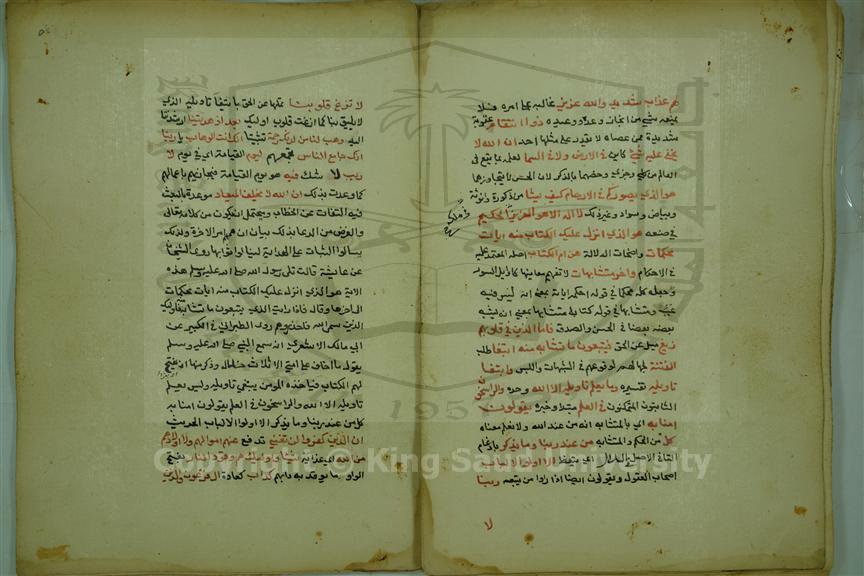 لهم عذاب شديد والله عزيز غالب على امره فلا
يمنعه شيء من انجاز وعده ووعيده ذو انتقام عقوبة
شديدة ممن عصاه لا يقدر على مثلها احد ان الله لا
يخفى عليه شيء كاين في الارض ولا في السما لعلمه بما يقع في
العالم من كلي وجزئي وخصهما بالذكر لان الحس لا يتجاوزهما
هو الذي يصوركم في الارحام كيف يشا من ذكورة وانوثة
وبياض وسواد وغير ذلك لا اله الا هو العزيز الحكيم
في صنعه هو الذي انزل عليك الكتاب منه ايات
محكمات واضحات الدلالة هن ام الكتاب اصله المعتمد عليه
في الاحكام واخر متشابهات لا تفهم معانيها كاوايل السور
وجعله كله محكما في قوله احكمت اياته بمعنى انه ليس فيه
عيب ومتشابها في قوله كتابا متشابها بمعنى انه يشبه
بعضه بعضا في الحسن والصدق فاما الذين في قلوبهم
زيغ ميل عن الحق فيتبعون ما تشابه منه ابتغا طلب
الفتنة لجهالهم بوقوعهم في الشبهات واللبس وابتغا
تاويله تفسيره وما يعلم تاويله الا الله وحده والراسخون
الثابتون المتمكنون في العلم مبتدا وخبره يقولون
امنا به اي بالمتشابه انه من عند الله ولا نعلم معناه
كل من المحكم والمتشابه من عند ربنا وما يذكر بادغام
التا في الاصل في الذال اي يتعظ الا اولوا الالباب
اصحاب العقول ويقولون ايضا اذا راوا من يتبعه ربنا
لا
لا تزغ قلوبنا تملها عن الحق بابتغا تاويله الذي
لا يليق بنا كما ازغت قلوب اوليك بعد اذ هديتنا ارشدتنا
اليه وهب لنا من لدنك رحمة تثبيتا انك انت الوهاب يا ربنا
انك جامع الناس تجمعهم ليوم القيامة اي في يوم لا
ريب لا شك فيه هو يوم القيامة فتجازيهم باعمالهم
كما وعدت بذلك ان الله لا يخلف الميعاد موعده بالبعث
فيه التفات عن الخطاب ويحتمل ان يكون من كلامه تعالى
والغرض من الدعا بذلك بيان ان همهم امر الاخرة ولذلك
سالوا الثبات على الهداية لينالوا ثوابها روى الشيخان
عن عايشة قالت تلى رسول الله صلى الله عليه وسلم هذه
الاية هو الذي انزل عليك الكتاب منه ايات محكمات
الى اخرها وقال فاذا رايت الذين يتبعون ما تشابه منه فاوليك
الذين سم الله فاحذروهم روى الطبراني في الكبير عن
ابي مالك الاشعري انه سمع النبي صلى الله عليه وسلم
يقول ما اخاف على امتي الا ثلاث خلال وذكر منها ان يفتح
لهم الكتاب فياخذه المومن يبتغي تاويله وليس يعلم
تاويله الا الله والراسخون في العلم يقولون امنا به
كل من عند ربنا وما يذكر الا اولوا الالباب الحديث
ان الذين كفروا لن تغني تدفع عنهم اموالهم ولا اولادهم
من الله اي عذابه شيا واوليك هم وقود النار بفتح
الواو ما يوقد به دابهم كداب كعادة ال فرعون والذين
Copyright © King Saud University
1957